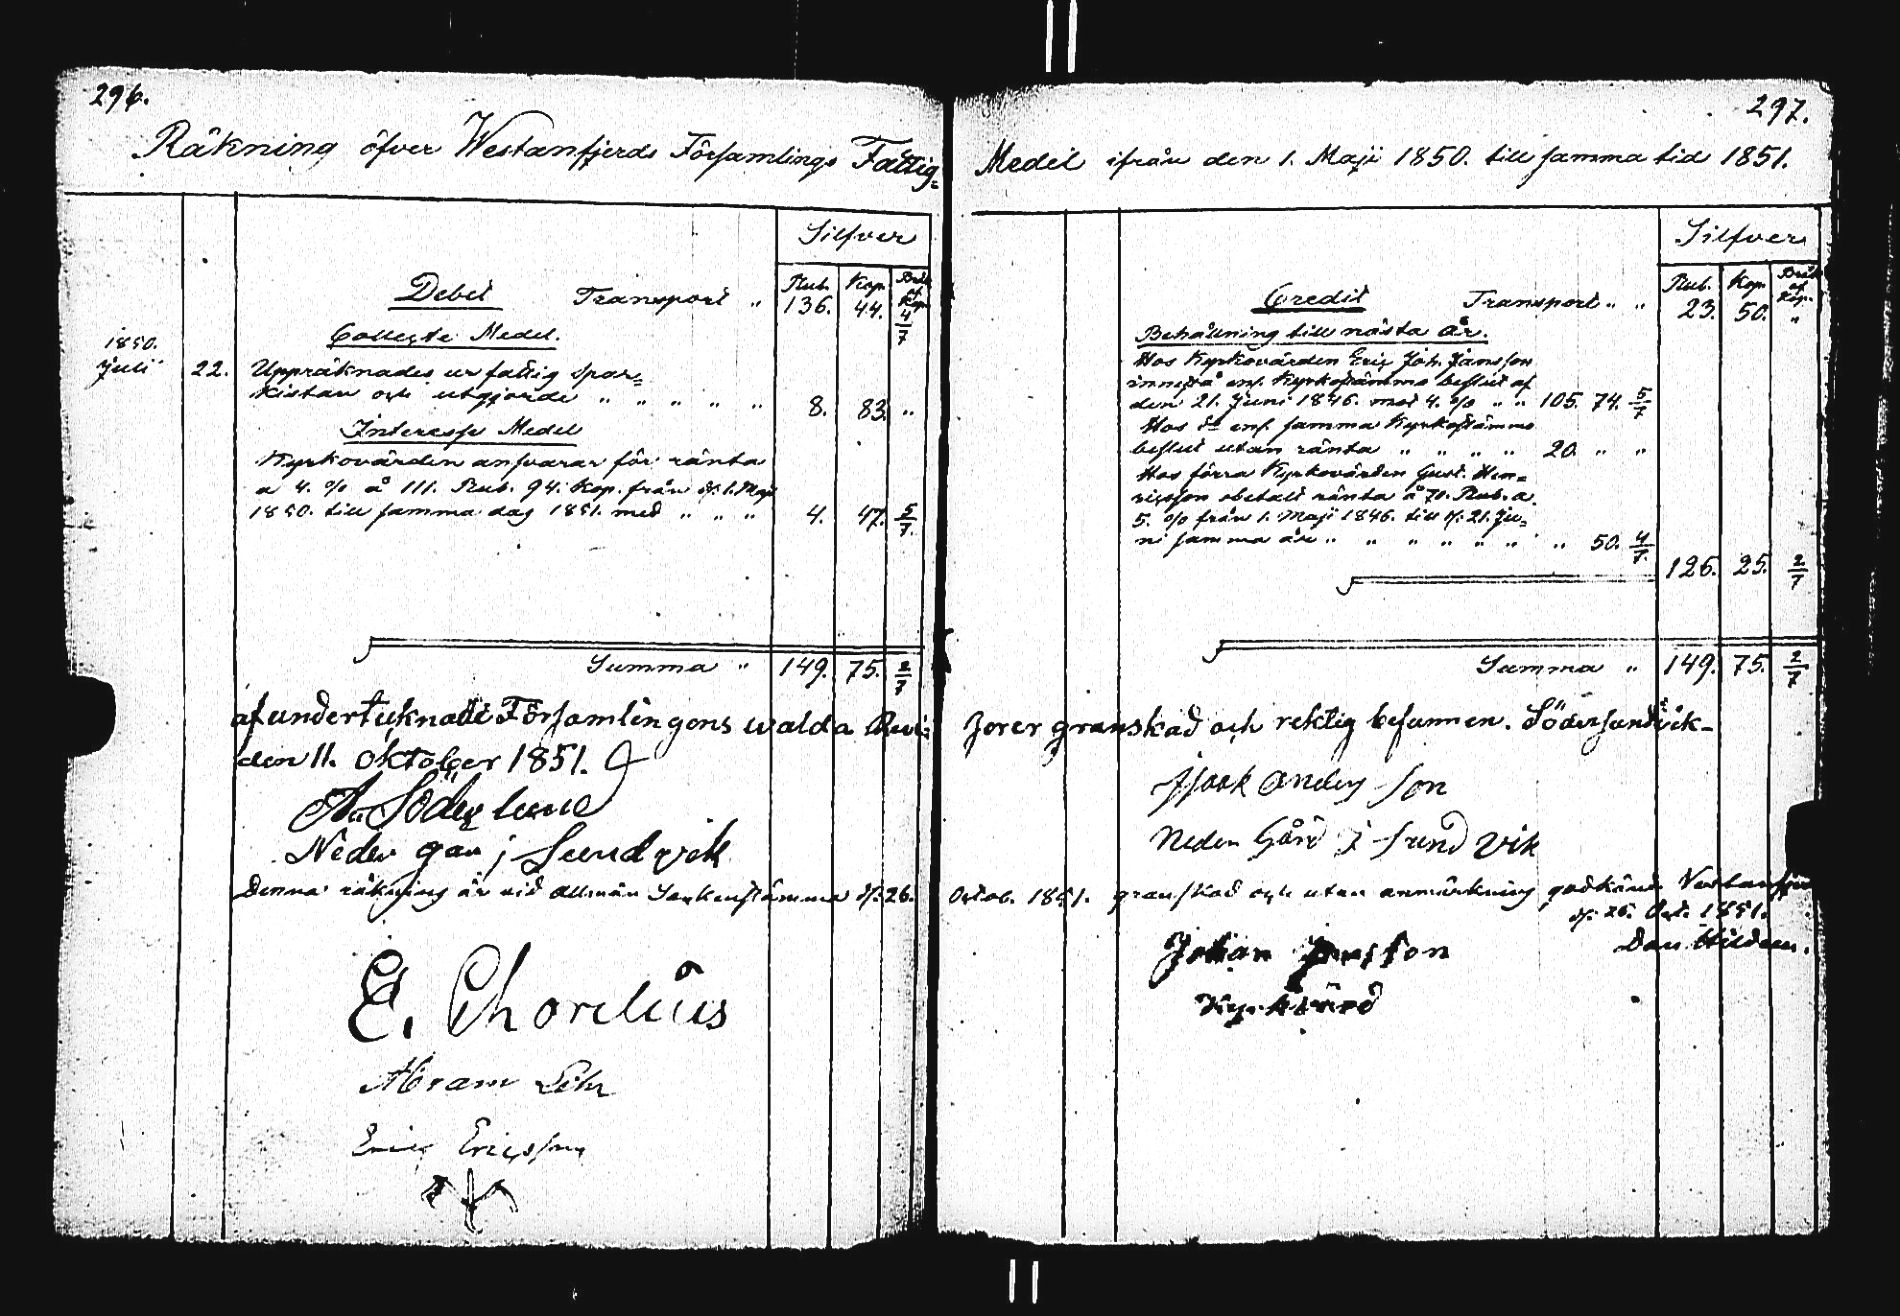 296.
Räkning öfver Westanfjerds Församlings Fattig=
Silfver
Debet Transport " Rub. 136. Kop. 44. Bråk af Kop. 4/7
Collecte Medel.
1850.
Julii 22. Uppräknades ur fattig spar=
kistan och utgjorde " " " " " 8. 83. "
Interesse Medel
Kyrkovärden ansvarar för ränta
a 4. % å 111. Rub. 94. Kop. från d. 1. Maji
1850. till samma dag 1851. med " " " 4. 47. 5/7.
Summa " 149. 75. 2/7
af undertecknade Församlingens walda Revi=
den 11. oktober 1851.
A. Söderlund
Neder går i Sundvik
Denna räkning är vid allmän Sockenstämma d. 26.
E. Thorelius
Abram Lihr
Eric Ericsson
297.
Medel ifrån den 1. Maji 1850. till samma tid 1851.
Silfver
Credit Transport " " Rub. 23. Kop. 50. Bråk af Kop. "
Behållning till nästa År.
Hos Kyrkovärden Eric Joh. Jansson
innestå enl. Kyrkostämmo beslut af
den 21. Juni 1846. mot 4. % " " 105. 74. 5/7
Hos do enl. samma Kyrkostämmo
beslut utan ränta " " " " 20. " "
Hos förra Kyrkovärden Gust. Hen=
ricsson obetalt ränta å 70. Rub. a
5. % från 1. Maji 1846. till d. 21. Ju=
ni samma år " " " " " " " 50. 4/7.
126. 25. 2/7
Summa " 149. 75. 2/7
sorer granskad och riktig befunnen. Södersundvik-
Isaak Anders son
Neden Gård i Sund vik
Octob. 1851. granskad och utan anmärkning godkänd. Westanfjerd
d. 26. Oct. 1851.
Dan. Hildeen.
Johan Jansson
Kyrkvärd